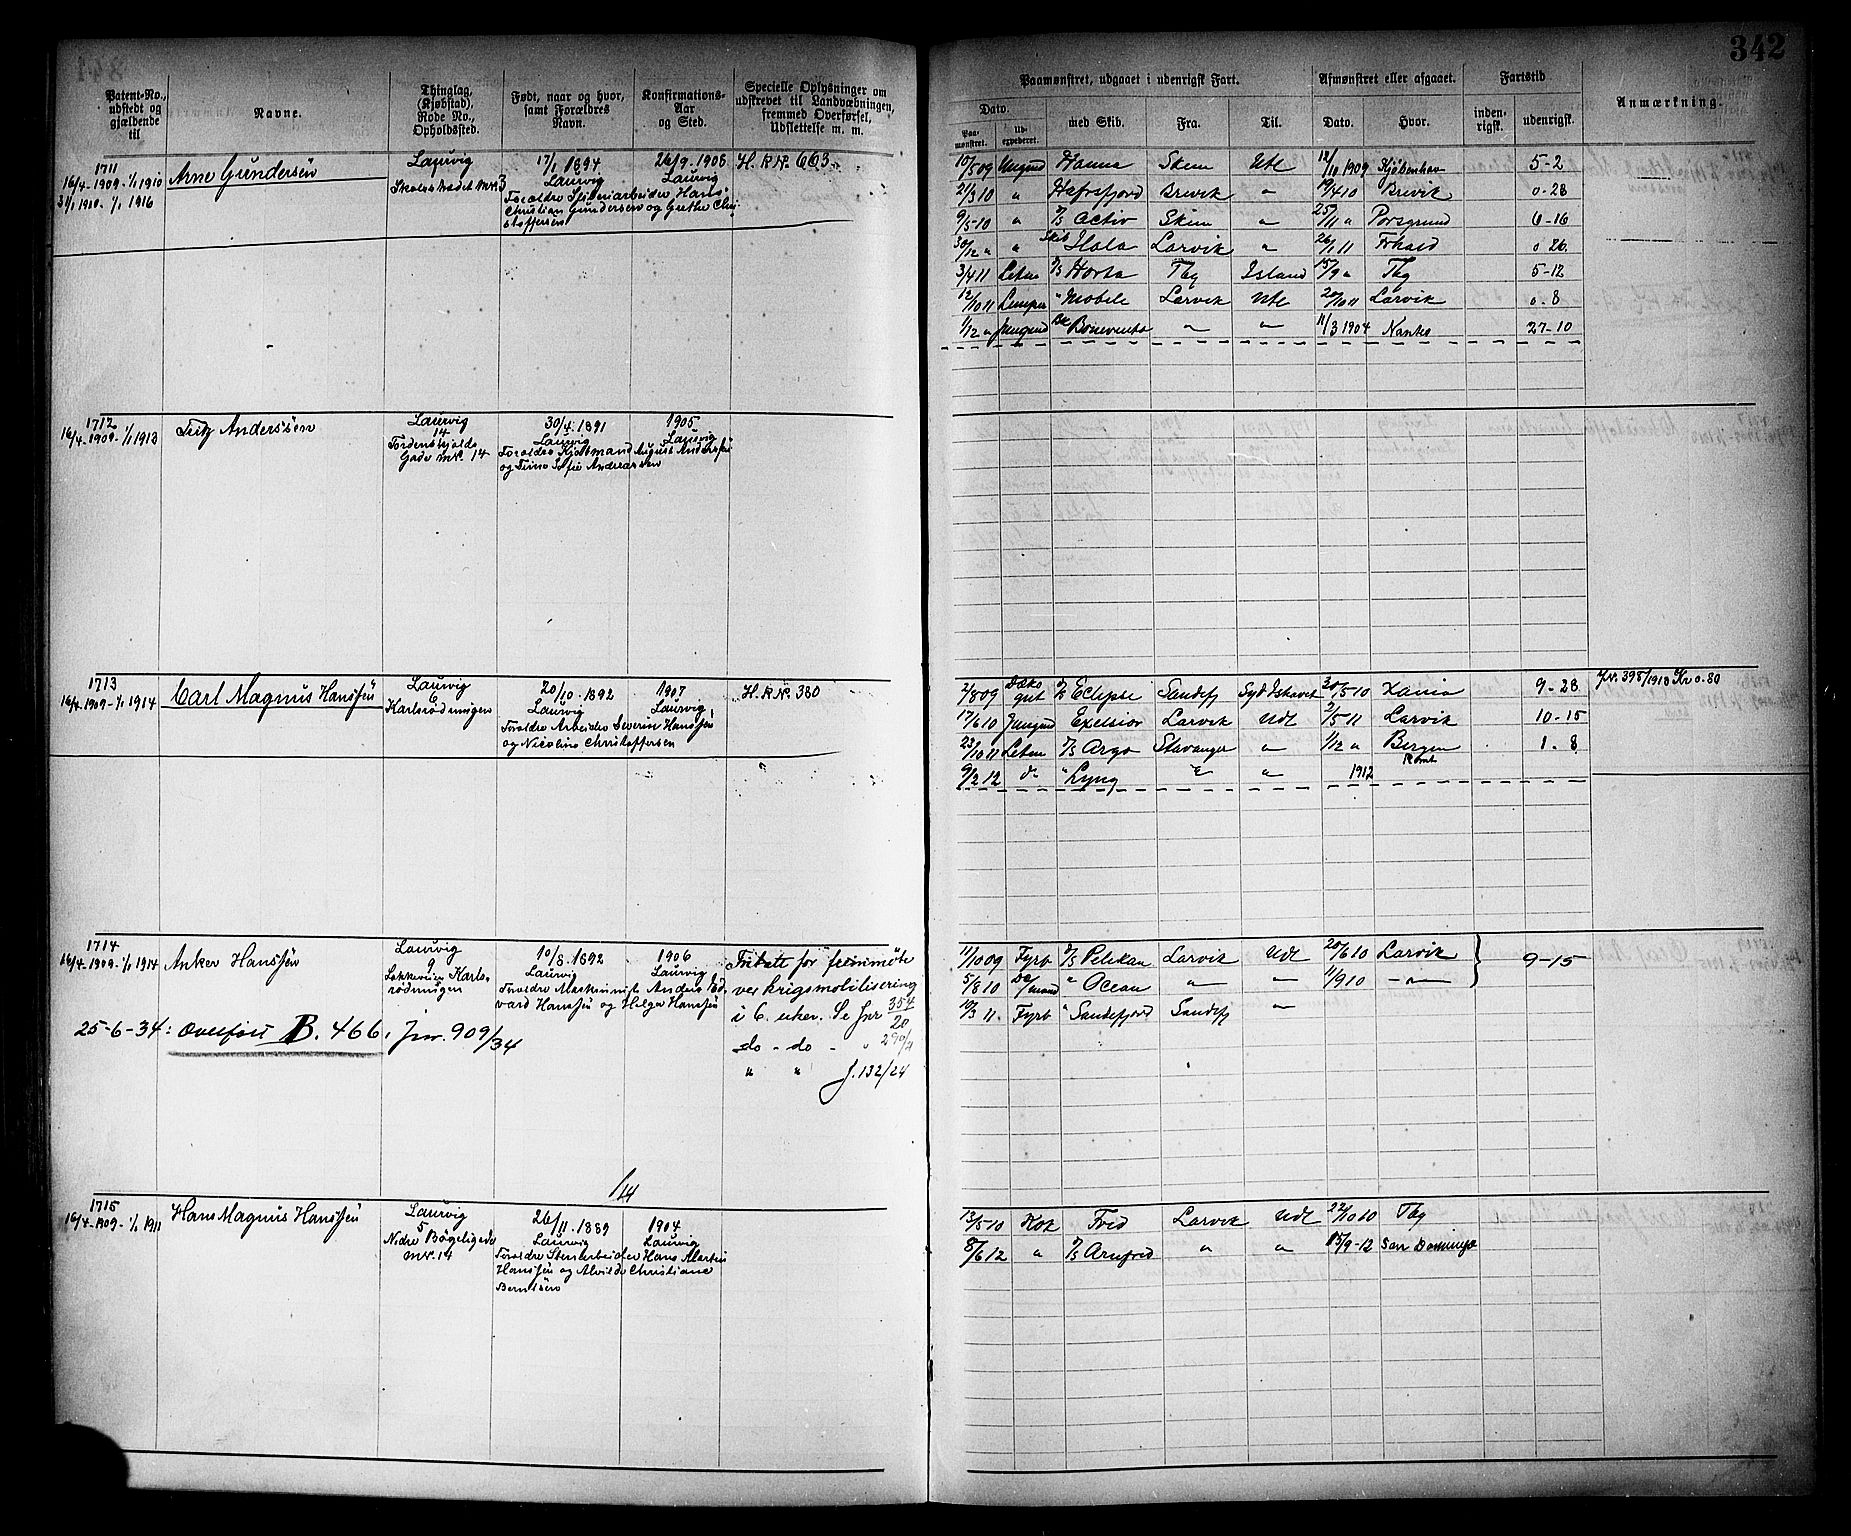 342
Patent-No., udstedt og gjældende til
Navne.
Thinglag, (Kjøbstad), Rode No., Opholdssted.
Født, naar og hvor, samt Forældres Navn.
Konfirmations-Aar og Sted.
Specielle Oplysninger om udskrevet til Landværbningen, fremmed Overførsel, Udslettelse m. m.
Paamønstret, udgaaet i udenrigsk Fart.
Dato.
Paamønstret.
med Skib.
Fra.
Til.
Afmønstret eller afgaaet.
Dato.
Hvor.
Fartstid
indenrigsk.
udenrigsk.
Anmærkning.
1711
16/4-1909-1/1 1910
31/1 1910- 1/1 1916
Arne Gundersen
Laurvig
17/1 1894
Laurvig
Christian Gundersen og Grethe Christoffersen
26/9.1908
Laurvig
H.R.N. 663.
10/5 09 Jungmd Hanna Skien Udl 12/10 1909 Kjøbenhavn 5-2
21/3 10 " Hafrsfjord Brevik " 19/4 10 Brevik 0.28
9/5-10 " D/S Activ Skien " 25/11 " Porsgrund 6-16
30/12 " " Skib Hala Larvik " 26/1 11 Frhald 0 26
3/4 11 Letm D/S Horta Tbg Island 15/9 " Tbg 5-12
12/10 11 Lemper " Mobile Larvik Udl 20/10 11 Larvik 0.8
1/12 " Jungmd Bk " " 11/3 1904 27-10
1712
16/4-1909-1/1 1913
Fritz Anderssen
Laurvig
14
Tordenskjolds
Gade mk. 14
30/4.1891
Laurvig
1905
Laurvig
1713
16/4-1909-1/1 1914
Carl Magnus Hanssen
Laurvig
6
Karlsrødningen
20/10.1892
Laurvig
Foreldre Arbeider Severin Hanssen
og Nicoline Christoffersen
1907
Laurvig
H.R.N. 380
2/8 09 Dæksgut D/S Eclipse Sandefj Syd Ishavet 30/5 10 Xania 9-28 Jr. 395/1913 Kr 0.80
17/6 10 Jungmd Exelsior Larvik Udl 2/5 11 Larvik 10-15
23/10 11 Letm D/S Argo Stavanger " 1/12 " Bergen 1.8
9/2 12 do " Lyng " " 1912 Rømt
1714
16/4-1909-1/1 1914
Anker Hanssen
Laurvig
9
Løkkeveien Karlsrødningen
19/8.1892
Laurvig
Foreldre Maskinmist Anders Edvard Hanssen og Helga Hanssen
1906
Laurvig
Fritatt for fremmøte
ved krigsmobilisering
i 6 uker. Se Jnr 354/20
do - do - " 290/21
" " J. 132/24
25-6-34: Overført B. 466. Jnr. 909/34
11/10 09 Fyrb D/S Pelikan Larvik Udl 20/6 10 Larvik 9-15
5/8 10 " Ocean " " 11/9 10 - " -
10/3 11. Fyrb " Sandefjord Sandefj "
1/14
1715
16/4-1909-1/1 1911
Hans Magnus Hanssen
Laurvig
5
Nedre Bøkeligade
mk. 14
26/11.1889
Laurvig
Foreldre Stenarbeider Hans Martin
Hanssen og Alvilde Christiane
Berntsen
1904
Laurvig
13/5 10 Kok Fred Larvik Udl 22/10 10 Tbg
8/6 12 " D/S Arnfred " " 15/9-12 San Domingo